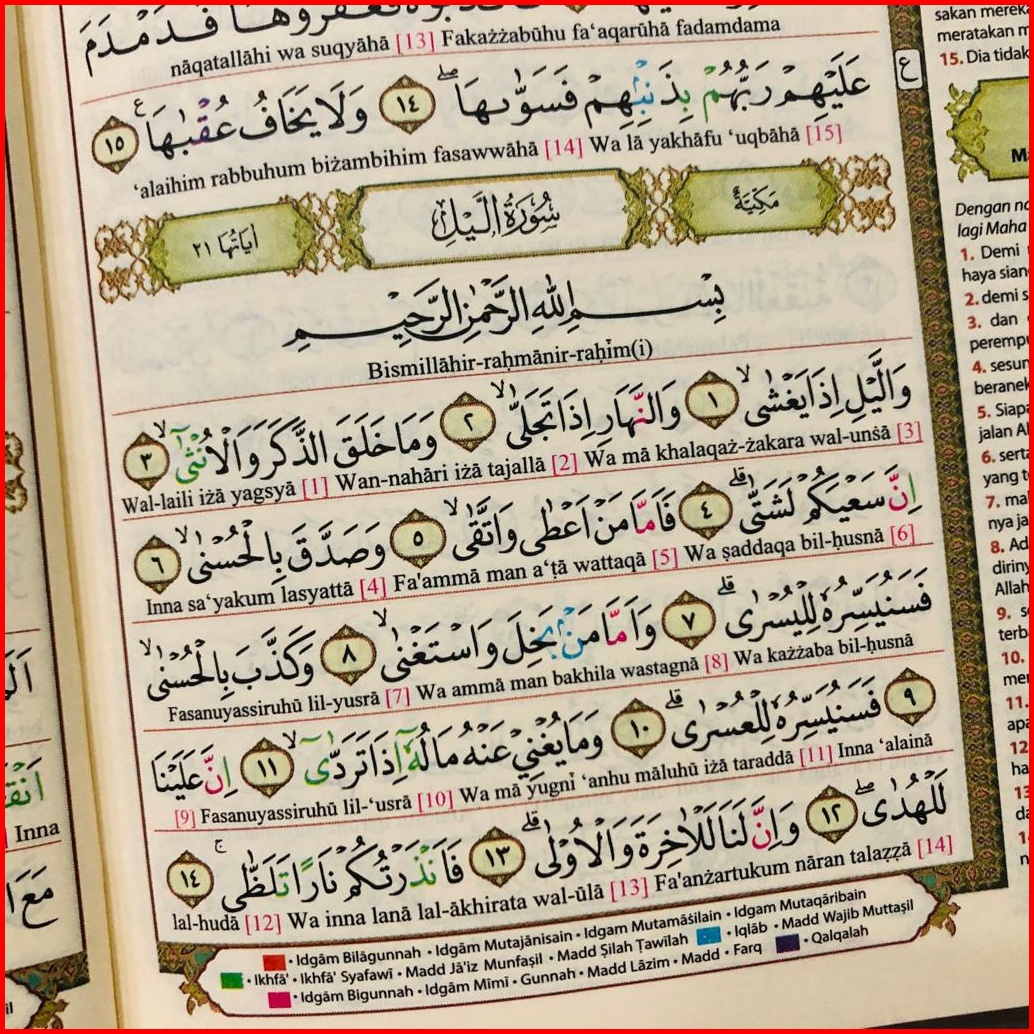 فَدَمْدَمَ
nāqatallāhi wa suqyāhā [13] Fakażżabūhu fa‘aqarūhā fadamdama
عَلَيْهِمْ رَبُّهُمْ بِذَنْۢبِهِمْ فَسَوّٰىهَاۖ ١٤ وَلَا يَخَافُ عُقْبٰهَا ١٥
‘alaihim rabbuhum biżambihim fasawwāhā [14] Wa lā yakhāfu ‘uqbāhā [15]
مَكِّيَّةٌ سُوْرَةُ الَّيْلِ اٰيَاتُهَا ٢١
بِسْمِ اللّٰهِ الرَّحْمٰنِ الرَّحِيْمِ
Bismillāhir-raḥmānir-raḥīm(i)
وَالَّيْلِ اِذَا يَغْشٰىۙ ١ وَالنَّهَارِ اِذَا تَجَلّٰىۙ ٢ وَمَا خَلَقَ الذَّكَرَ وَالْاُنْثٰىٓۙ ٣
Wal-laili iżā yagsyā [1] Wan-nahāri iżā tajallā [2] Wa mā khalaqaż-żakara wal-unśā [3]
اِنَّ سَعْيَكُمْ لَشَتّٰىۗ ٤ فَاَمَّا مَنْ اَعْطٰى وَاتَّقٰىۙ ٥ وَصَدَّقَ بِالْحُسْنٰىۙ ٦
Inna sa‘yakum lasyattā [4] Fa'ammā man a‘ṭā wattaqā [5] Wa ṣaddaqa bil-ḥusnā [6]
فَسَنُيَسِّرُهٗ لِلْيُسْرٰىۗ ٧ وَاَمَّا مَنْۢ بَخِلَ وَاسْتَغْنٰىۙ ٨ وَكَذَّبَ بِالْحُسْنٰىۙ
Fasanuyassiruhū lil-yusrā [7] Wa ammā man bakhila wastagnā [8] Wa każżaba bil-ḥusnā
٩ فَسَنُيَسِّرُهٗ لِلْعُسْرٰىۗ ١٠ وَمَا يُغْنِيْ عَنْهُ مَالُهٗٓ اِذَا تَرَدّٰىٓۙ ١١ اِنَّ عَلَيْنَا
[9] Fasanuyassiruhū lil-‘usrā [10] Wa mā yugnī ‘anhu māluhū iżā taraddā [11] Inna ‘alainā
لَلْهُدٰىۖ ١٢ وَاِنَّ لَنَا لَلْاٰخِرَةَ وَالْاُوْلٰىۗ ١٣ فَاَنْذَرْتُكُمْ نَارًا تَلَظّٰىۚ ١٤
lal-hudā [12] Wa inna lanā lal-ākhirata wal-ūlā [13] Fa'anżartukum nāran talaẓẓā [14]
• Idgām Bilāgunnah • Idgām Mutajānisain • Idgam Mutamāśilain • Idgam Mutaqāribain
• Ikhfā' • Ikhfā' Syafawī • Madd Jā'iz Munfaṣil • Madd Ṣilah Ṭawīlah • Iqlāb • Madd Wajib Muttaṣil
• Idgām Bigunnah • Idgām Mīmī • Gunnah • Madd Lāzim • Madd • Farq • Qalqalah
ع
sakan
meratakan
15. Dia tidak
Dengan
lagi Maha
1. Demi
haya
2. demi
3. dan
4.
5.
jalan
6.
yang
7.
nya
8.
Allah
9.
10.
11.
12
Inna